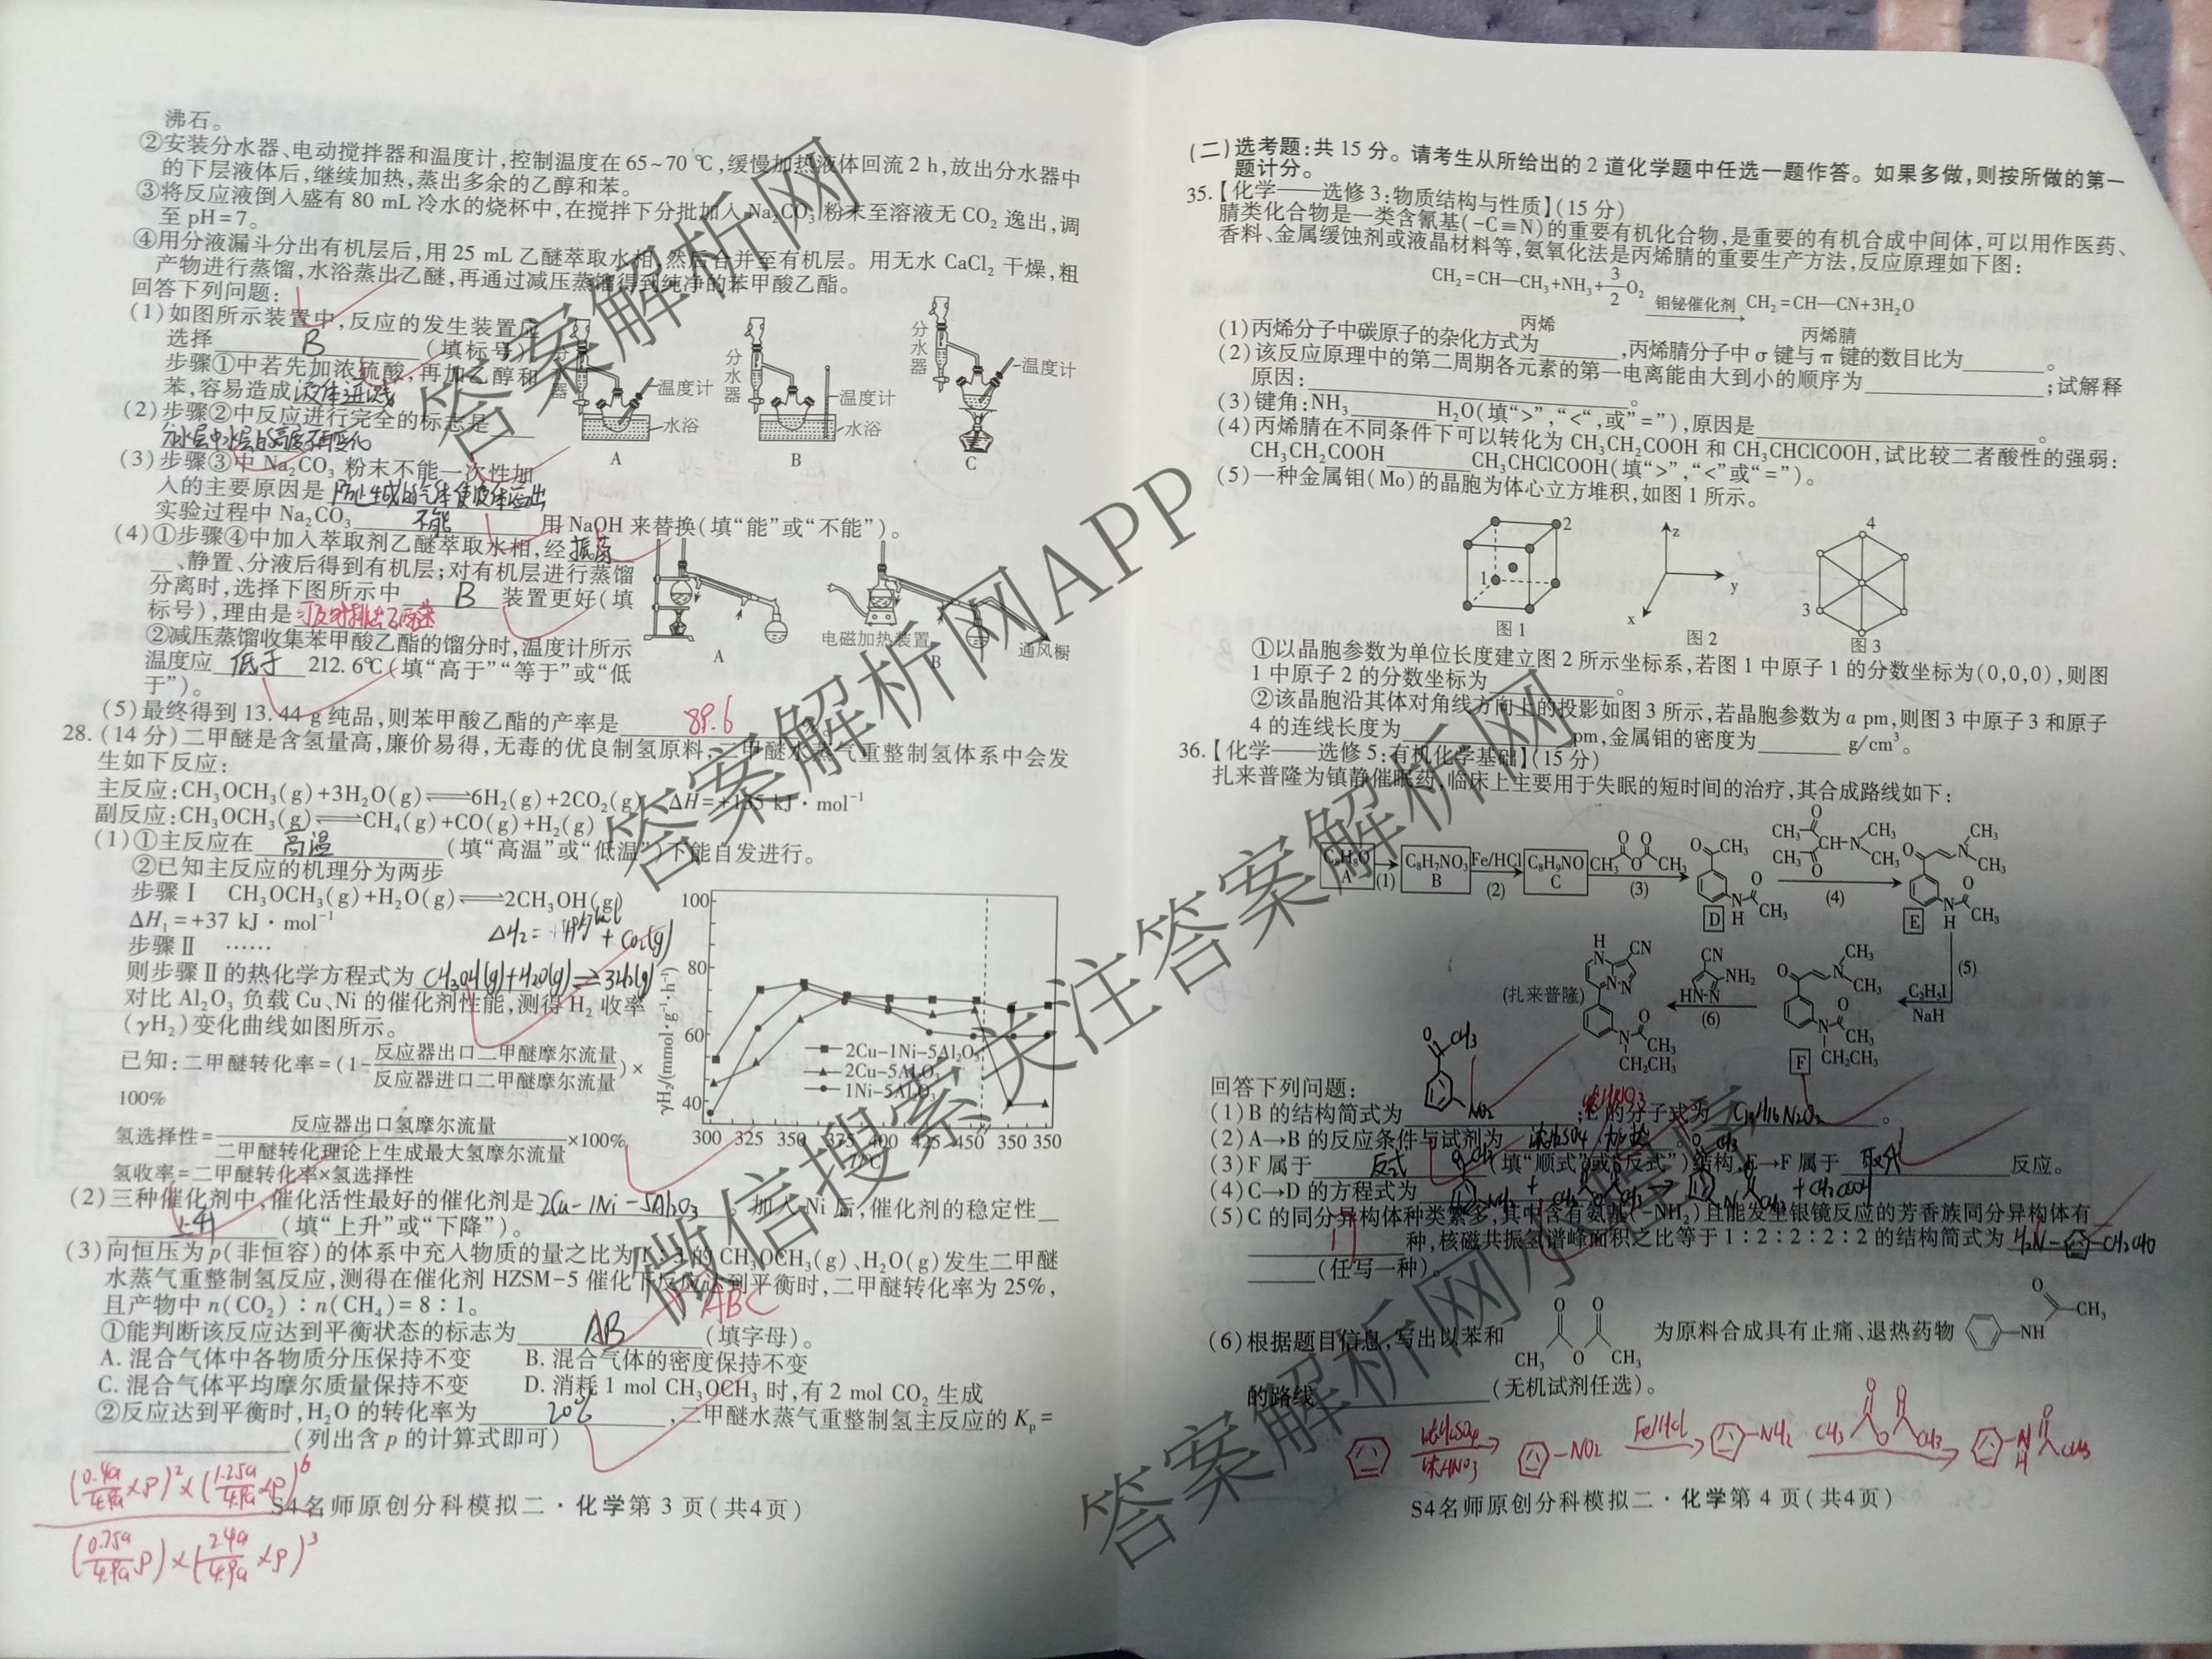 沸石。
②安装分水器、电动搅拌器和温度计,控制温度在65~70 ℃,缓慢加热液体回流2 h,放出分水器中
的下层液体后,继续加热,蒸出多余的乙醇和苯。
③将反应液倒入盛有80 mL冷水的烧杯中,在搅拌下分批加入Na₂CO₃粉末至溶液无CO₂逸出,调
至pH=7。
④用分液漏斗分出有机层后,用25 mL乙醚萃取水相,然后合并至有机层。用无水CaCl₂干燥,粗
产物进行蒸馏,水浴蒸出乙醚,再通过减压蒸馏得到纯净的苯甲酸乙酯。
回答下列问题:
(1)如图所示装置中,反应的发生装置应
选择 B (填标号)
步骤①中若先加浓硫酸,再加乙醇和
苯,容易造成液体迸溅
(2)步骤②中反应进行完全的标志是
分水器中水层的高度不再变化
(3)步骤③中Na₂CO₃粉末不能一次性加
入的主要原因是防止生成的气体使液体溢出
实验过程中Na₂CO₃ 不能 用NaOH来替换(填“能”或“不能”)。
分水器 温度计 水浴 A
分水器 温度计 水浴 B
分水器 温度计 C
(4)①步骤④中加入萃取剂乙醚萃取水相,经振荡
、静置、分液后得到有机层;对有机层进行蒸馏
分离时,选择下图所示中 B 装置更好(填
标号),理由是及时排出乙醚蒸
A 电磁加热装置 B 通风橱
②减压蒸馏收集苯甲酸乙酯的馏分时,温度计所示
温度应 低于 212.6℃(填“高于”“等于”或“低
于”)。
(5)最终得到13.44 g纯品,则苯甲酸乙酯的产率是 89.6
28.(14分)二甲醚是含氢量高,廉价易得,无毒的优良制氢原料,二甲醚水蒸气重整制氢体系中会发
生如下反应:
主反应:CH₃OCH₃(g)+3H₂O(g)⇌6H₂(g)+2CO₂(g) ΔH=+135 kJ·mol⁻¹
副反应:CH₃OCH₃(g)⇌CH₄(g)+CO(g)+H₂(g)
(1)①主反应在 高温 (填“高温”或“低温”)下能自发进行。
②已知主反应的机理分为两步
步骤Ⅰ CH₃OCH₃(g)+H₂O(g)⇌2CH₃OH(g)
ΔH₁=+37 kJ·mol⁻¹
步骤Ⅱ ……
则步骤Ⅱ的热化学方程式为 CH₃OH(g)+H₂O(g)⇌3H₂(g)+CO₂(g)
对比Al₂O₃负载Cu、Ni的催化剂性能,测得H₂收率
(γH₂)变化曲线如图所示。
已知:二甲醚转化率=(1-反应器出口二甲醚摩尔流量/反应器进口二甲醚摩尔流量)×
100%
氢选择性=反应器出口氢摩尔流量/二甲醚转化理论上生成最大氢摩尔流量×100%
氢收率=二甲醚转化率×氢选择性
γH₂/(mmol·g⁻¹·h⁻¹)
100
80
60
40
2Cu-1Ni-5Al₂O₃
2Cu-5Al₂O₃
1Ni-5Al₂O₃
300 325 350 375 400 425 450 350 350
T/℃
(2)三种催化剂中,催化活性最好的催化剂是2Cu-1Ni-5Al₂O₃。加入Ni后,催化剂的稳定性
上升 (填“上升”或“下降”)。
(3)向恒压为p(非恒容)的体系中充入物质的量之比为1:3的CH₃OCH₃(g)、H₂O(g)发生二甲醚
水蒸气重整制氢反应,测得在催化剂HZSM-5催化下反应达到平衡时,二甲醚转化率为25%,
且产物中n(CO₂):n(CH₄)=8:1。
①能判断该反应达到平衡状态的标志为 AB (填字母)。 ABC
A.混合气体中各物质分压保持不变 B.混合气体的密度保持不变
C.混合气体平均摩尔质量保持不变 D.消耗1 mol CH₃OCH₃时,有2 mol CO₂生成
②反应达到平衡时,H₂O的转化率为 20% ,二甲醚水蒸气重整制氢主反应的Kp=
(列出含p的计算式即可)
(0.4a/4.9a×p)²×(1.25a/4.9a×p)⁶
(0.75a/4.9a p)×(2.4a/4.9a×p)³
S4名师原创分科模拟二·化学第3页(共4页)
(二)选考题:共15分。请考生从所给出的2道化学题中任选一题作答。如果多做,则按所做的第一
题计分。
35.【化学——选修3:物质结构与性质】(15分)
腈类化合物是一类含氰基(-C≡N)的重要有机化合物,是重要的有机合成中间体,可以用作医药、
香料、金属缓蚀剂或液晶材料等,氨氧化法是丙烯腈的重要生产方法,反应原理如下图:
CH₂=CH—CH₃+NH₃+3/2O₂ 钼铋催化剂→ CH₂=CH—CN+3H₂O
丙烯 丙烯腈
(1)丙烯分子中碳原子的杂化方式为 ,丙烯腈分子中σ键与π键的数目比为 。
(2)该反应原理中的第二周期各元素的第一电离能由大到小的顺序为 ;试解释
原因: 。
(3)键角:NH₃ H₂O(填“>”,“<”,或“=”),原因是 。
(4)丙烯腈在不同条件下可以转化为CH₃CH₂COOH和CH₃CHClCOOH,试比较二者酸性的强弱:
CH₃CH₂COOH CH₃CHClCOOH(填“>”,“<”或“=”)。
(5)一种金属钼(Mo)的晶胞为体心立方堆积,如图1所示。
1 2 图1
z y x 图2
4 3 图3
①以晶胞参数为单位长度建立图2所示坐标系,若图1中原子1的分数坐标为(0,0,0),则图
1中原子2的分数坐标为 。
②该晶胞沿其体对角线方向上的投影如图3所示,若晶胞参数为a pm,则图3中原子3和原子
4的连线长度为 pm,金属钼的密度为 g/cm³。
36.【化学——选修5:有机化学基础】(15分)
扎来普隆为镇静催眠药,临床上主要用于失眠的短时间的治疗,其合成路线如下:
C₈H₈O A (1) C₈H₇NO₃ B Fe/HCl (2) C₈H₉NO C (3) D (4) E
(5) C₂H₅I NaH F (6) (扎来普隆)
回答下列问题:
(1)B的结构简式为 ;E的分子式为 C₁₃H₁₆N₂O₂ 。
(2)A→B的反应条件与试剂为 浓H₂SO₄ 加热 。
(3)F属于 反式 (填“顺式”或“反式”)结构,E→F属于 取代 反应。
(4)C→D的方程式为
(5)C的同分异构体种类繁多,其中含有氨基(-NH₂)且能发生银镜反应的芳香族同分异构体有
17 种,核磁共振氢谱峰面积之比等于1:2:2:2:2的结构简式为 H₂N- -CH₂CHO
(任写一种)。
(6)根据题目信息,写出以苯和 CH₃ O CH₃ 为原料合成具有止痛、退热药物 NH CH₃
的路线 (无机试剂任选)。
浓H₂SO₄ 浓HNO₃ -NO₂ Fe/HCl -NH₂ CH₃ O CH₃ N H CH₃
S4名师原创分科模拟二·化学第4页(共4页)
答案解析网
答案解析网APP
微信搜索关注答案解析网
答案解析网小程序
答案解析网